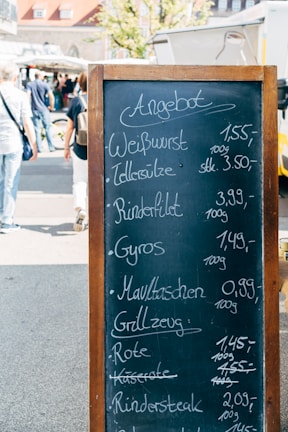 Angebot
Weißwurst 1,55,-
100g
Tellersülze Stk. 3.50,-
Rinderfilet 3,99,-
100g
Gyros 1,49,-
100g
Maultaschen 0,99,-
100g
Grillzeug:
Rote 1,45,-
100g
Käserote 1,55,-
100g
Rindersteak 2,09,-
100g
1,45